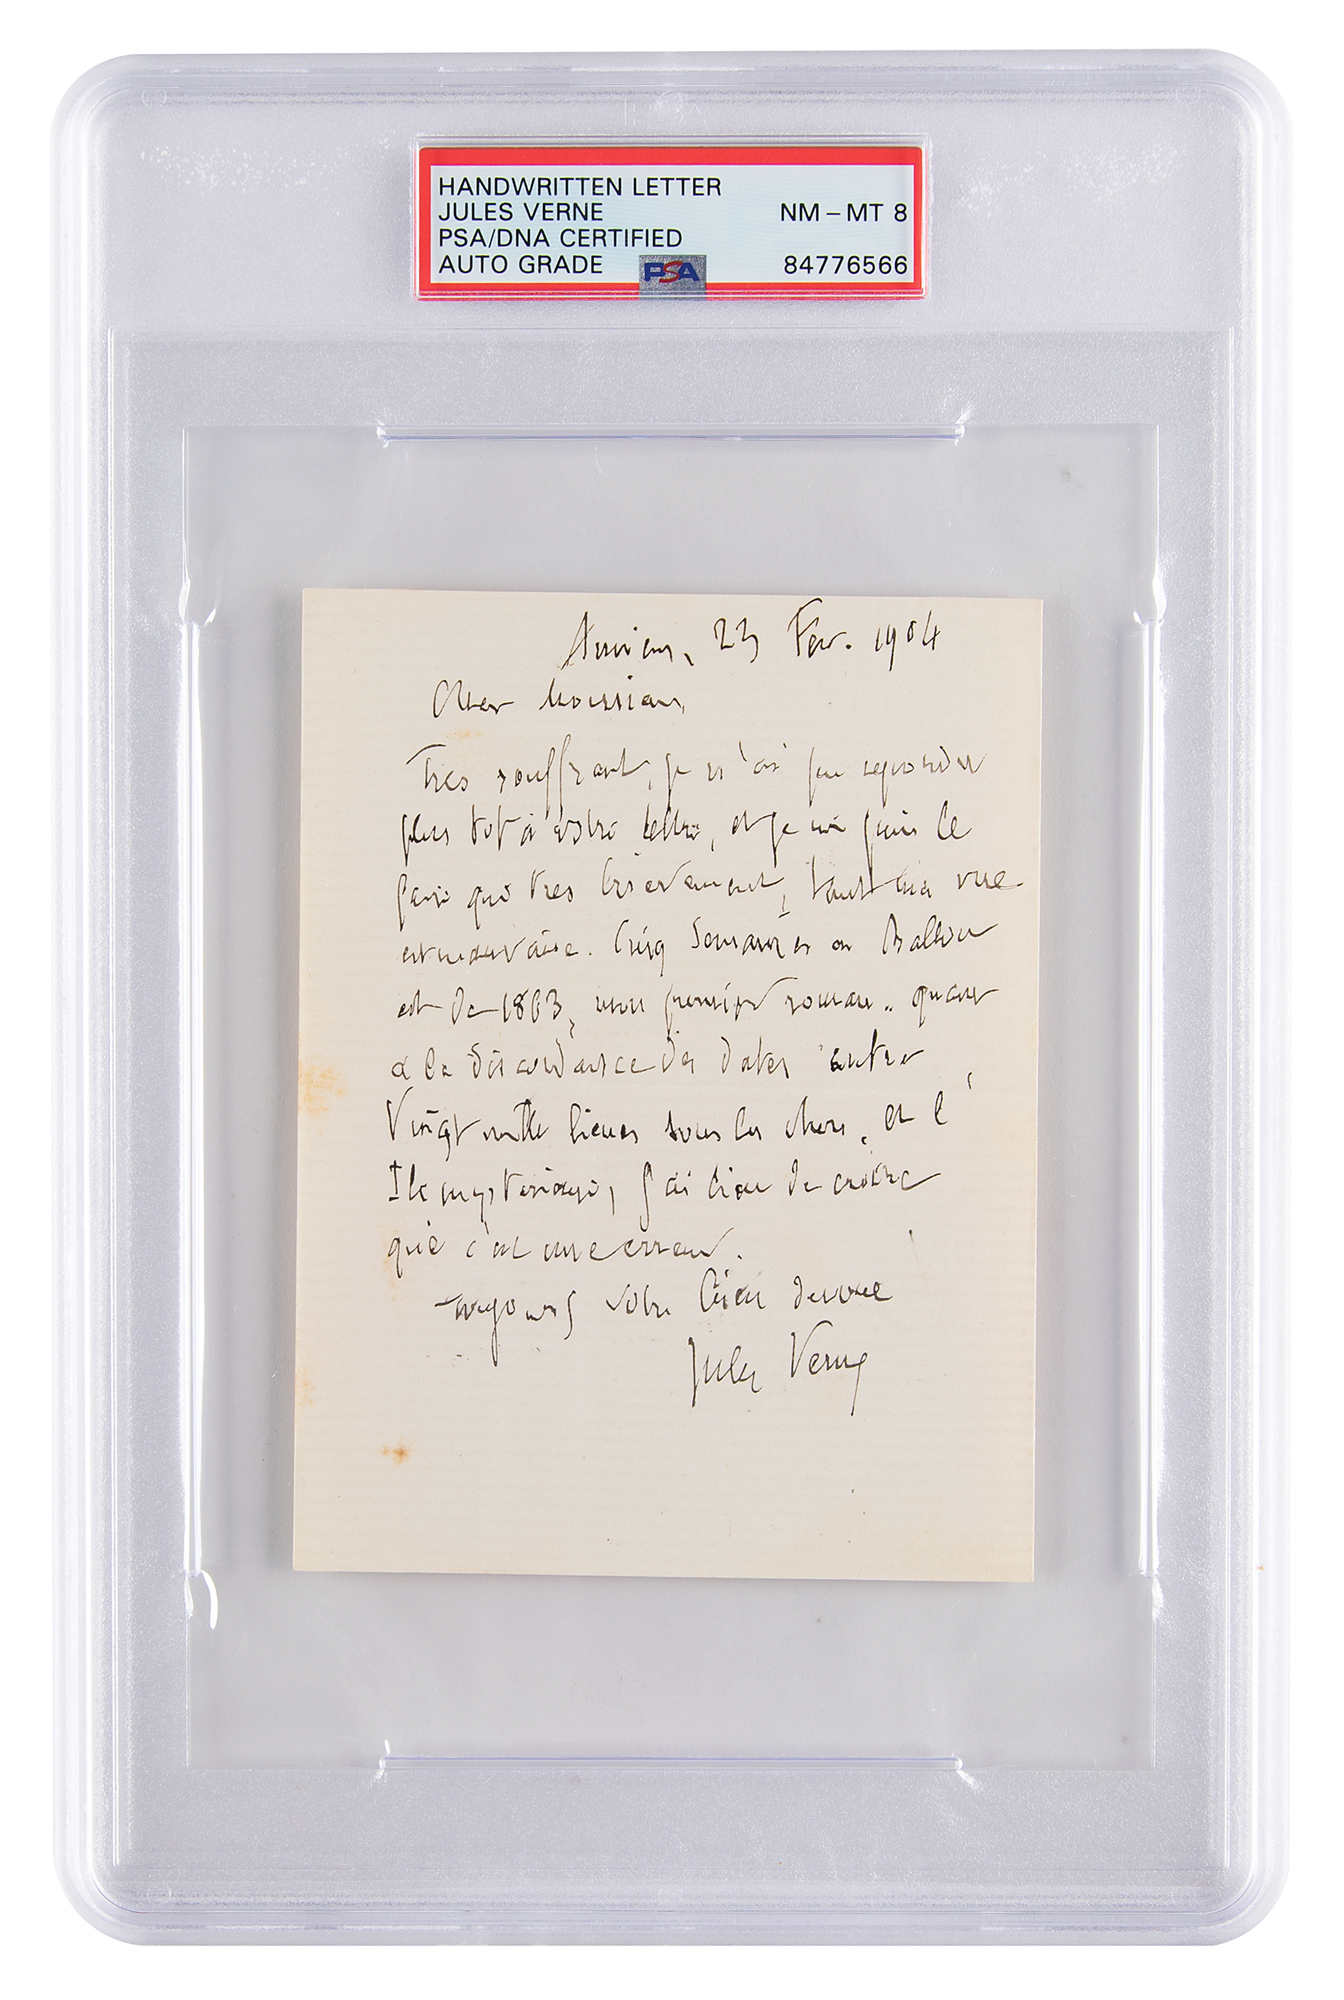 HANDWRITTEN LETTER
JULES VERNE NM – MT 8
PSA/DNA CERTIFIED
AUTO GRADE PSA 84776566
Amiens, 23 Fév. 1904
Cher Monsieur,
Très souffrant, je n'ai pu répondre
plus tot à votre lettre, et je ne puis le
faire que très brièvement, tant ma vue
est mauvaise. Cinq Semaines en Ballon
est de 1863, mon premier roman. quant
à la discordance des dates entre
Vingt mille lieues sous les Mers, et l'
Ile mystérieuse, j'ai lieu de croire
que c'est une erreur.
Toujours votre bien dévoué
Jules Verne